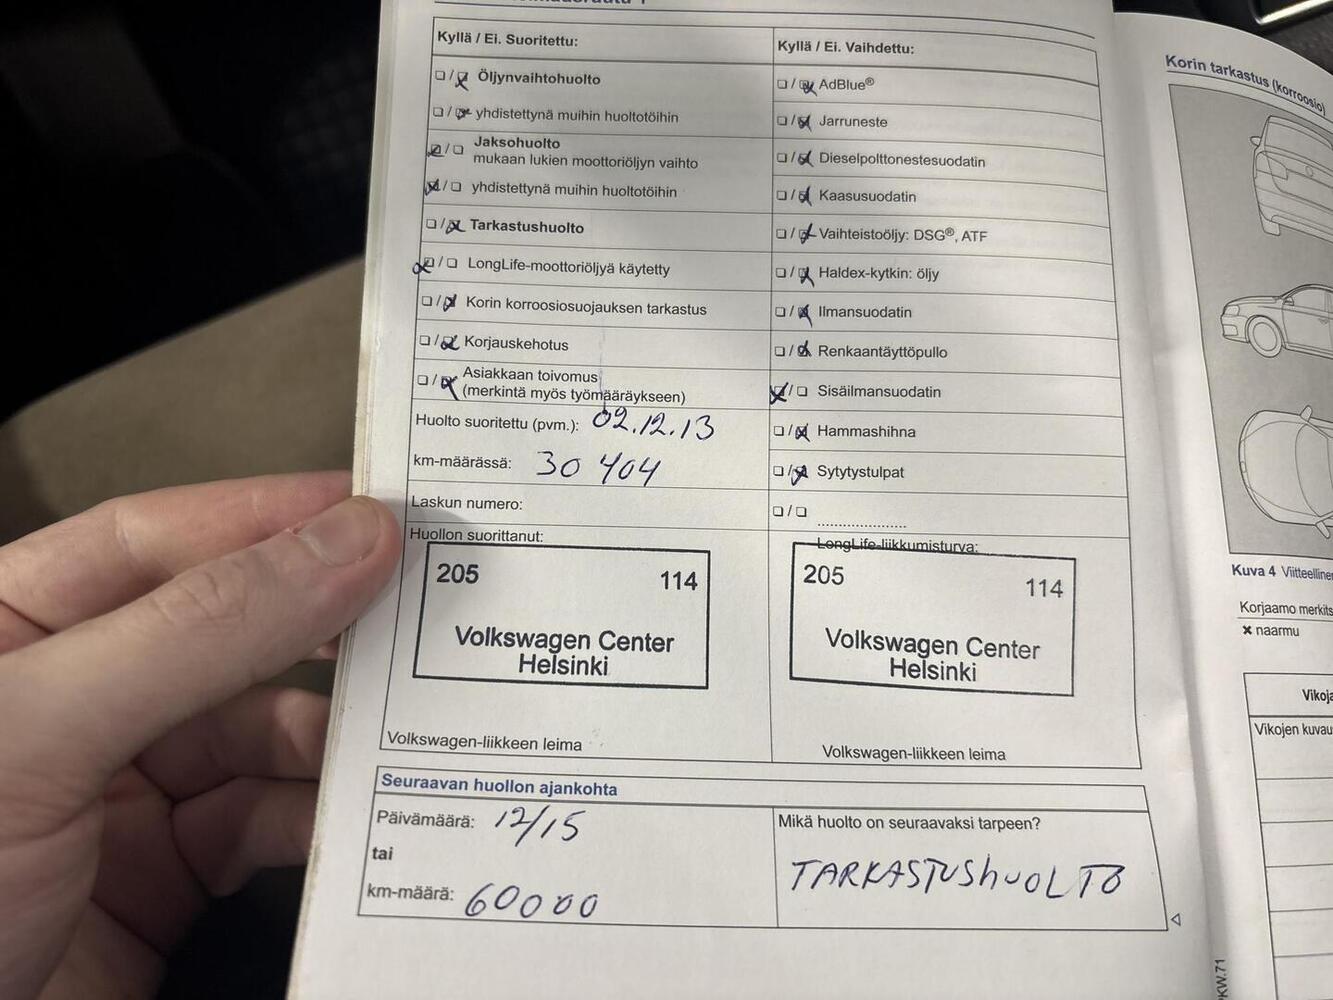 Kyllä / Ei. Suoritettu:
☐ / ☒ Öljynvaihtohuolto
☐ / ☒ yhdistettynä muihin huoltotöihin
☒ / ☐ Jaksohuolto
mukaan lukien moottoriöljyn vaihto
☒ / ☐ yhdistettynä muihin huoltotöihin
☐ / ☒ Tarkastushuolto
☒ / ☐ LongLife-moottoriöljyä käytetty
☐ / ☒ Korin korroosiosuojauksen tarkastus
☐ / ☒ Korjauskehotus
☐ / ☒ Asiakkaan toivomus
(merkintä myös työmääräykseen)
Huolto suoritettu (pvm.): 02.12.13
km-määrässä: 30 404
Laskun numero:
Huollon suorittanut:
205 114
Volkswagen Center
Helsinki
Volkswagen-liikkeen leima
Kyllä / Ei. Vaihdettu:
☐ / ☒ AdBlue®
☐ / ☒ Jarruneste
☐ / ☒ Dieselpolttonestesuodatin
☐ / ☒ Kaasusuodatin
☐ / ☒ Vaihteistoöljy: DSG®, ATF
☐ / ☒ Haldex-kytkin: öljy
☐ / ☒ Ilmansuodatin
☐ / ☒ Renkaantäyttöpullo
☒ / ☐ Sisäilmansuodatin
☐ / ☒ Hammashihna
☐ / ☒ Sytytystulpat
☐ / ☐ ......................
LongLife-liikkumisturva:
205 114
Volkswagen Center
Helsinki
Volkswagen-liikkeen leima
Seuraavan huollon ajankohta
Päivämäärä: 12/15
tai
km-määrä: 60000
Mikä huolto on seuraavaksi tarpeen?
TARKASTUSHUOLTO
Korin tarkastus (korroosio)
Kuva 4
Korjaamo
✖ naarmu
Vikojen